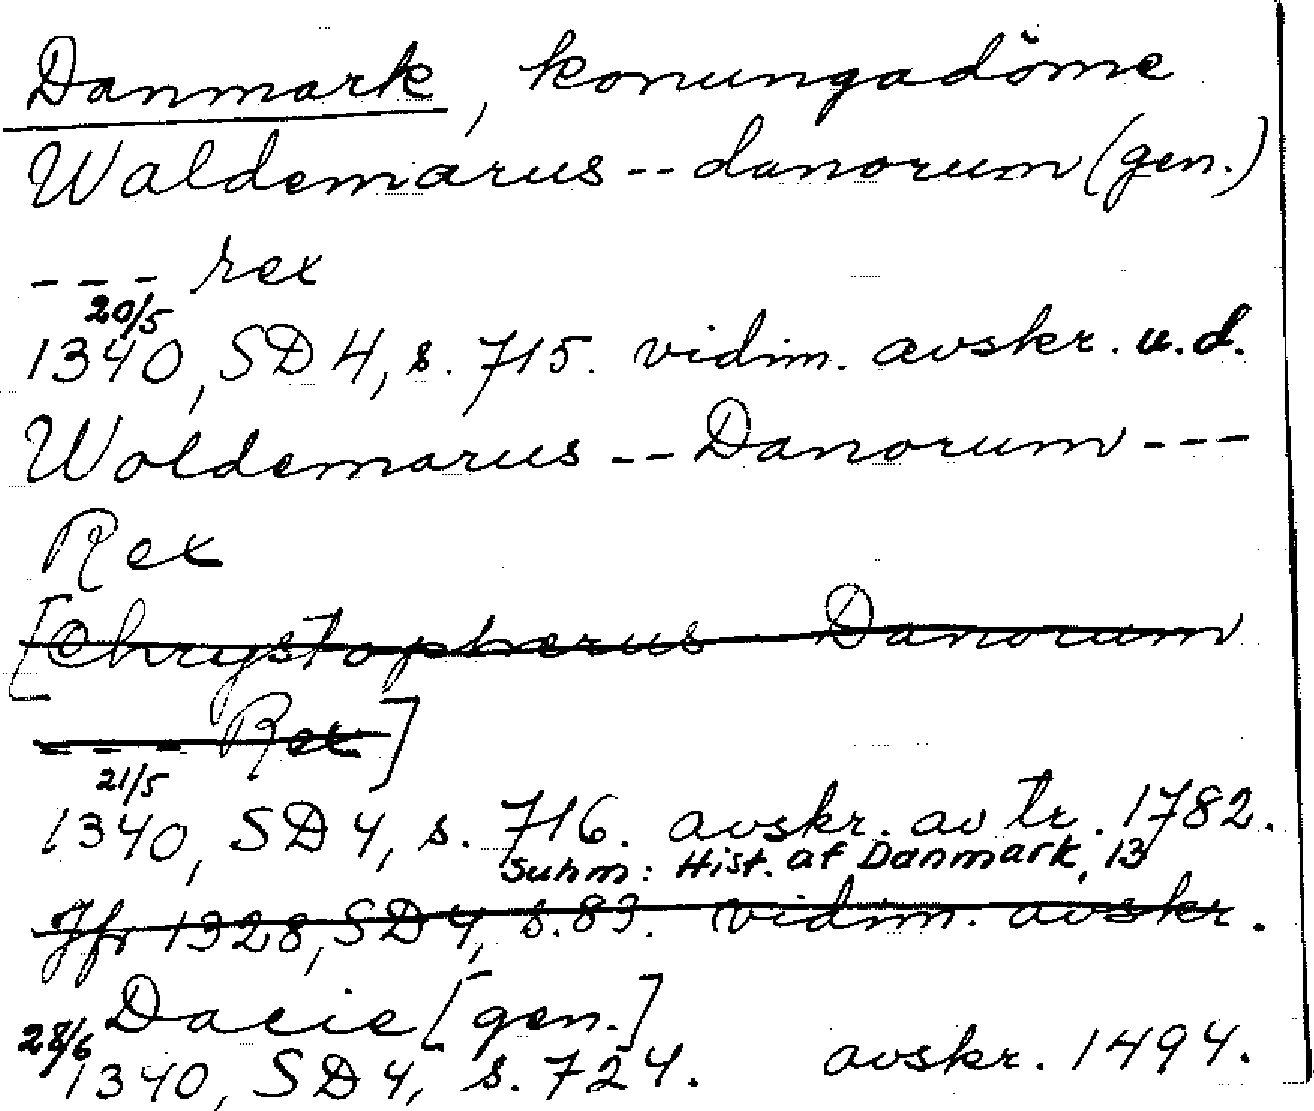 Danmark, konungadöme
Waldemarus -- danorum (gen.)
--- rex
20/5
1340, SD 4, s. 715. vidim. avskr. u.d.
Woldemarus -- Danorum ---
Rex
[Chrystopherus Danorum
--- Rex]
21/5
1340, SD 4, s. 716. avskr. av tr. 1782.
Suhm: Hist. af Danmark, 13
Jfr 1328, SD 4, s. 83. vidim. avskr.
Dacie [gen.]
28/6
1340, SD 4, s. 724. avskr. 1494.